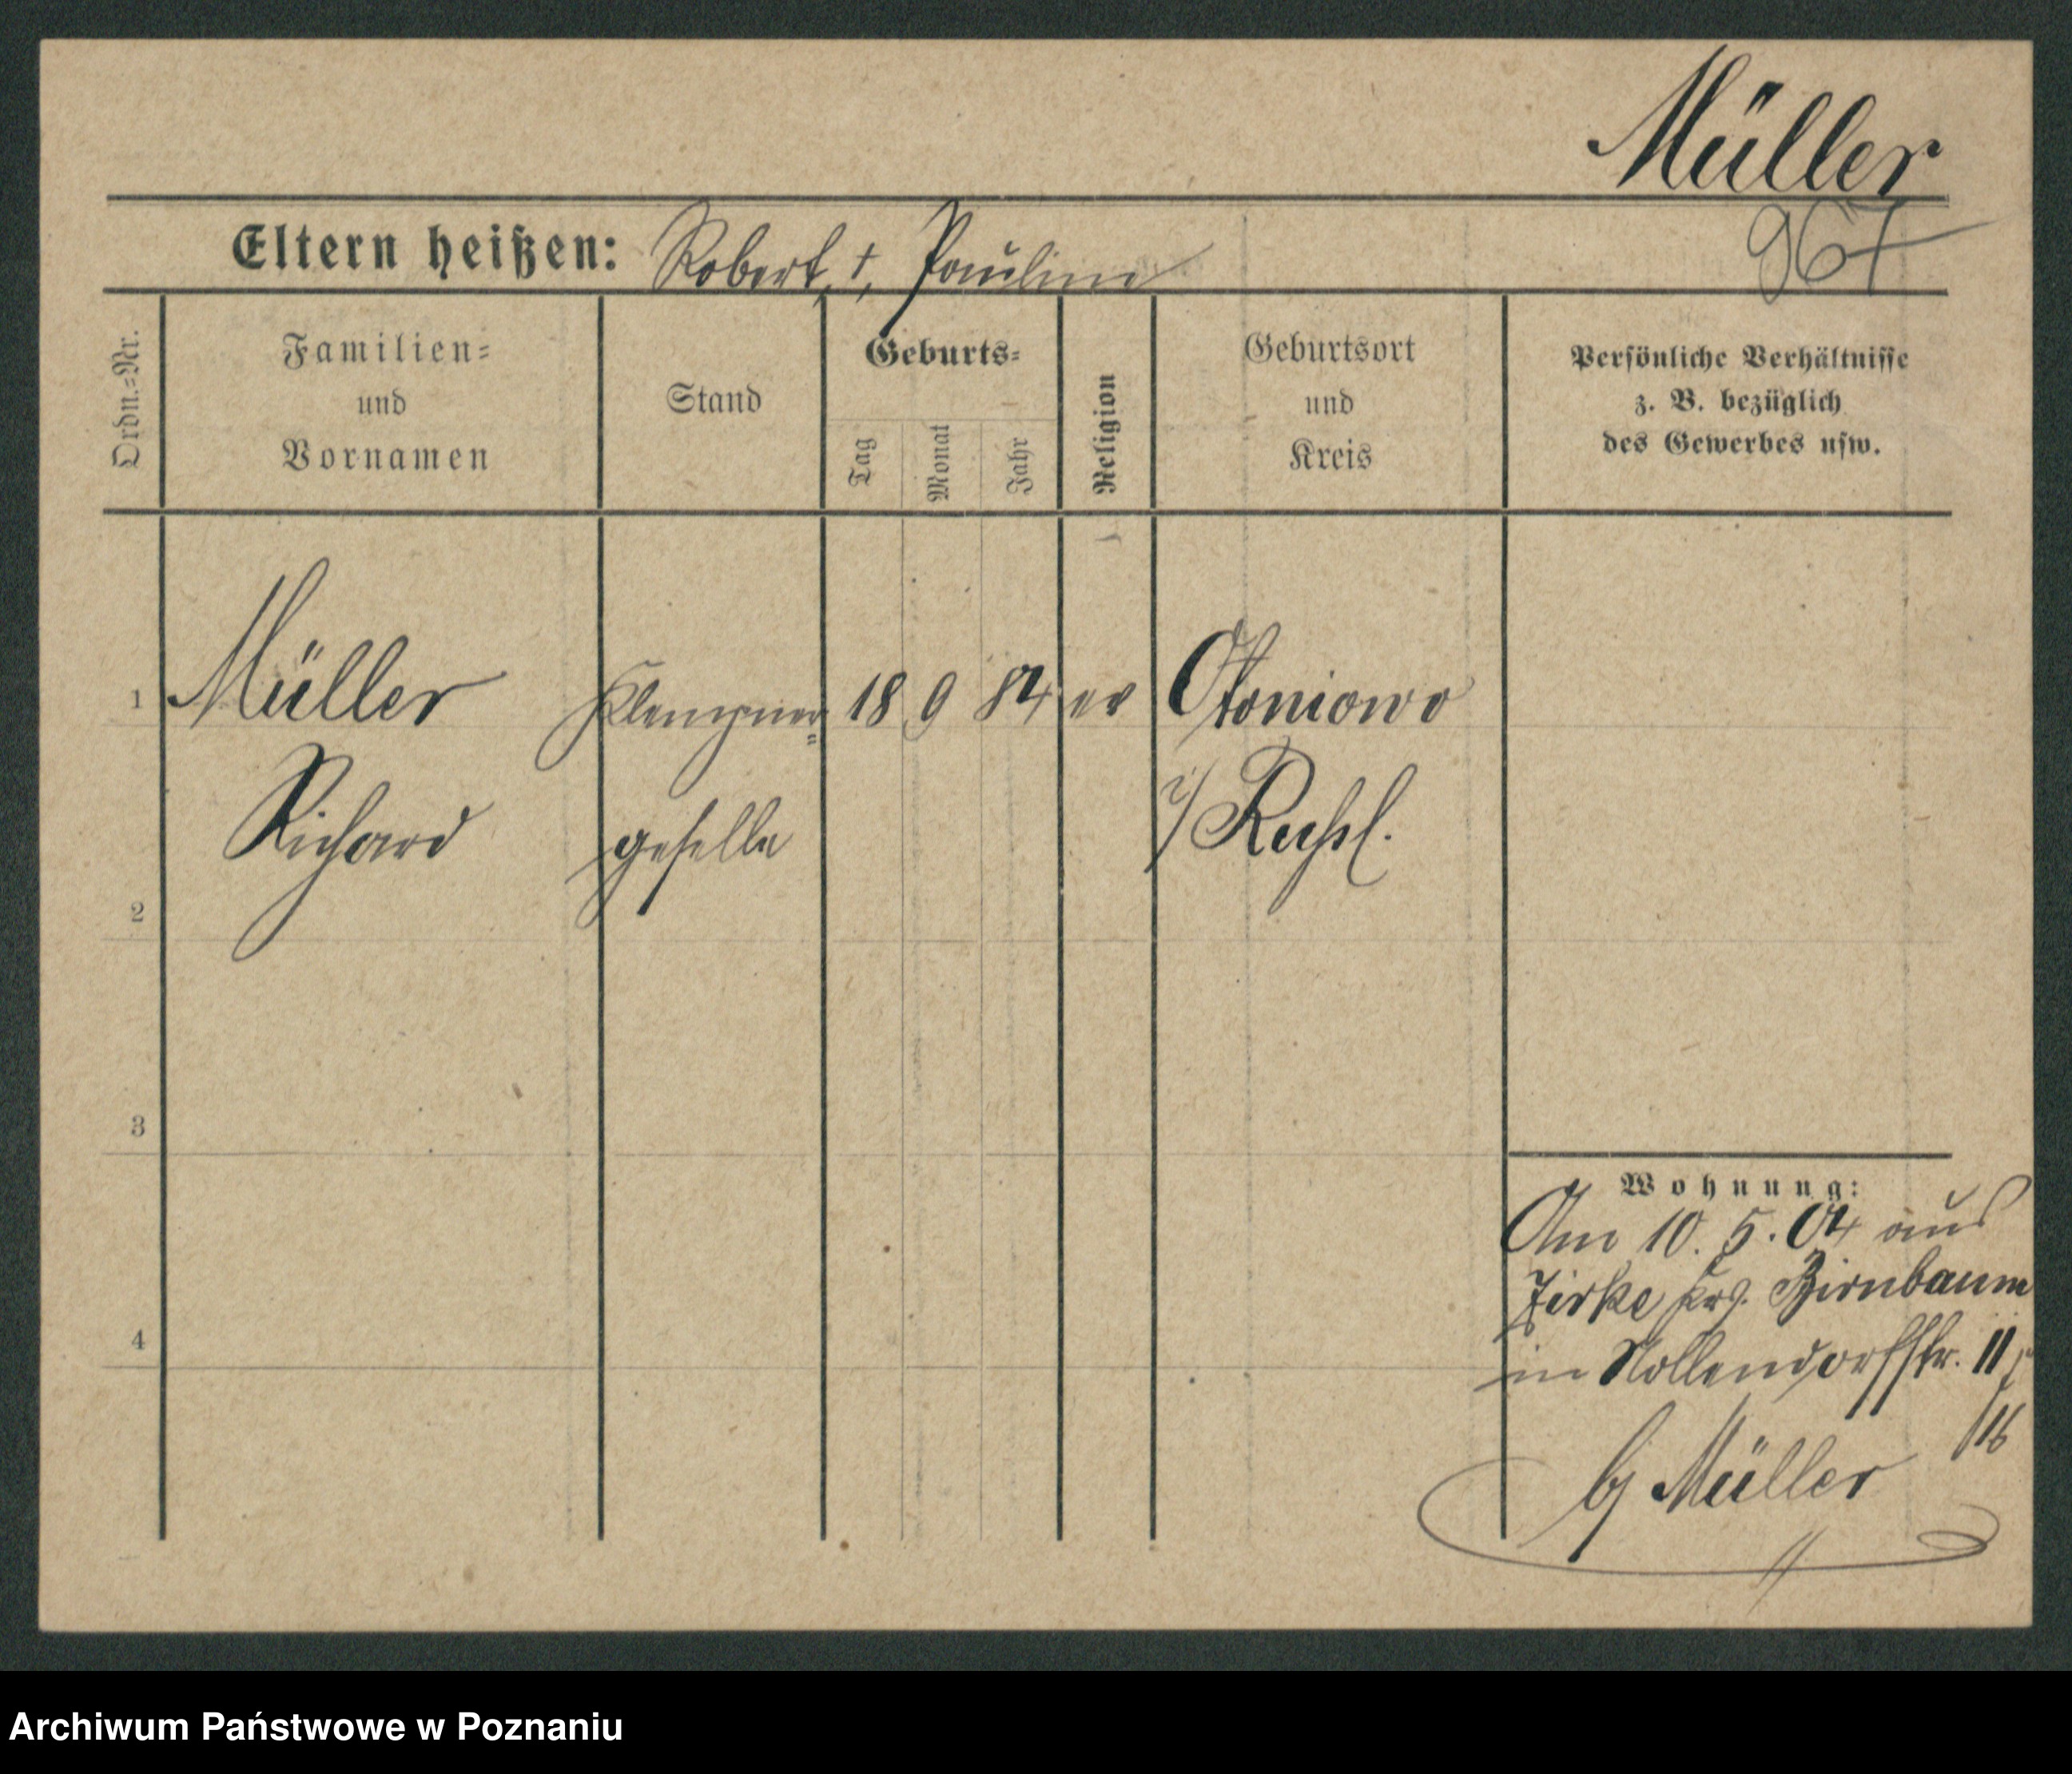 Müller
Eltern heißen: Robert, †, Pauline
967
Ordn.=Nr.
Familien=
und
Vornamen
Stand
Geburts=
Tag
Monat
Jahr
Religion
Geburtsort
und
Kreis
Persönliche Verhältnisse
z. B. bezüglich
des Gewerbes usw.
1 Müller Klempner= 18 9 84 ev Otoniowo
Richard geselle i/
2
3
4
Wohnung:
Am 10. 5. 04 aus
Zirke Krs. Birnbaum
in Nollendorfstr. 11
/16
bj Müller
Archiwum Państwowe w Poznaniu